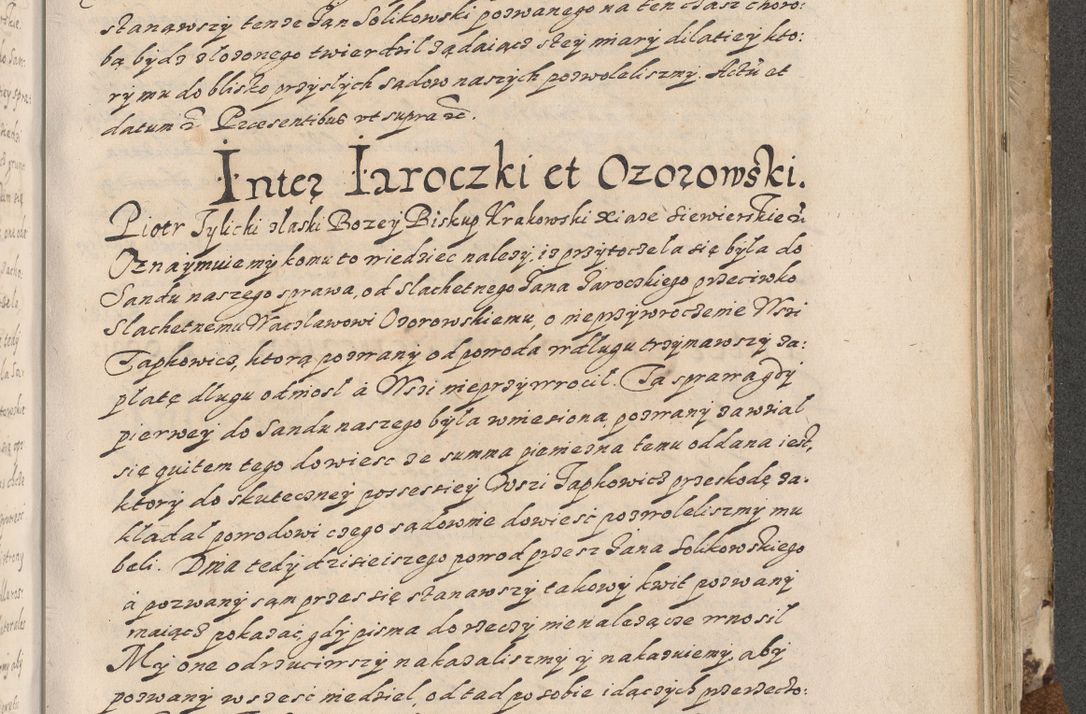 stanawszy tenże Jan Solikowski pozwanego na ten czasz choro:
bą bydź złożonego twierdził żądaiącz stey miary dilatiey kto:
ry mu do blisko przyszłych sądow naszych pozwoleliszmy. Actũ et
datum &. Præsentibus vt supra &c.
Inter Iaroczki et Ozorowski.
Piotr Tylicki z łaski Bozey Biskup Krakowski xiąże Siewierskie &
Oznaymuiemy komu to wiedziec nalezy, iz przytoczela się była do
Sandu naszego sprawa, od slachetnego Jana Jaroczkiego przeciwko
slachetnemu Wacławowi Ozorowskiemu, o nieprzywroczenie Wszi
Tapkowicz, ktorą pozwany od powoda w dlugu trzymawszy za:
płatę dlugu odniosl á Wszi nieprzywrocil. Ta sprawa gdy
pierwey do Sandu naszego była wniesiona, pozwany zawzial
się quitem tego dowiesc ze summa pieniezna temu oddana iest,
ktory do skuteczney possessiey Wszi Tapkowicz przeskodę za:
kładal powodowi czego sądownie dowiesć pozwoleliszmy mu
beli. Dnia tedy dzisieiszego powod przesz Jana Solikowskiego
á pozwany sąm przes się stanawszy takowy kwit pozwany
maiącz pokazać, gdy pisma do rzeczy nienalezącze wnosil
My one odrzuciwszy nakazaliszmy y nakazuiemy, aby
pozwany w szesć niedziel, od tad po sobie idączych przerzeczo: